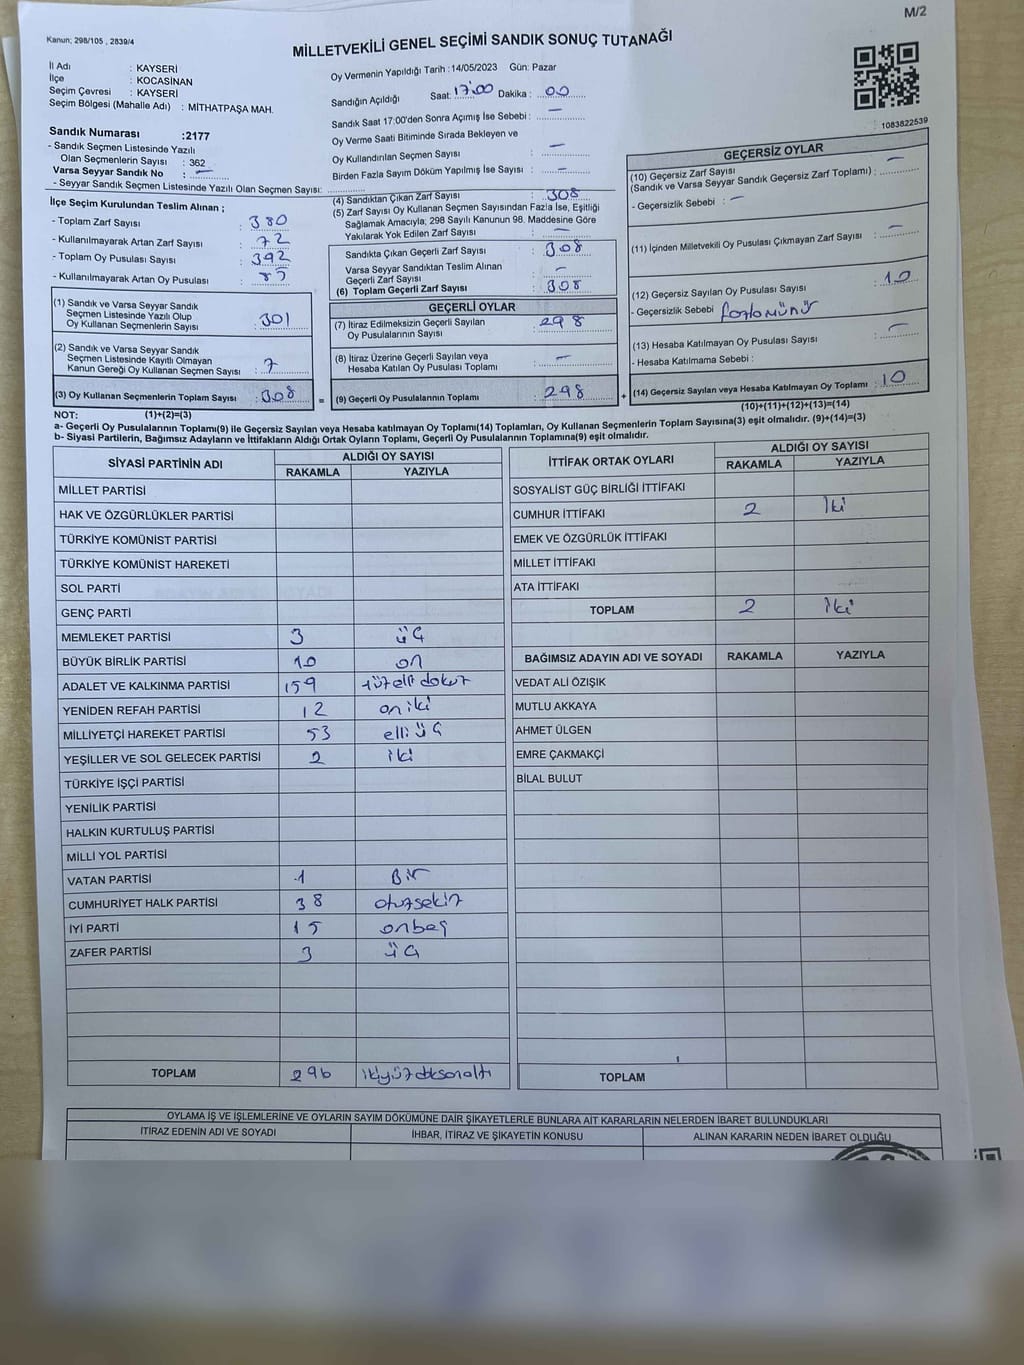 M/2
Kanun; 298/105 , 2839/4
MİLLETVEKİLİ GENEL SEÇİMİ SANDIK SONUÇ TUTANAĞI
İl Adı : KAYSERİ
İlçe : KOCASİNAN
Seçim Çevresi : KAYSERİ
Seçim Bölgesi (Mahalle Adı) : MİTHATPAŞA MAH.
Sandık Numarası :2177
- Sandık Seçmen Listesinde Yazılı
Olan Seçmenlerin Sayısı : 362
Varsa Seyyar Sandık No : —
- Seyyar Sandık Seçmen Listesinde Yazılı Olan Seçmen Sayısı:
Oy Vermenin Yapıldığı Tarih :14/05/2023 Gün: Pazar
Sandığın Açıldığı Saat: 17:00 Dakika : 00
Sandık Saat 17:00'den Sonra Açımış İse Sebebi : —
Oy Verme Saati Bitiminde Sırada Bekleyen ve
Oy Kullandırılan Seçmen Sayısı : —
Birden Fazla Sayım Döküm Yapılmış İse Sayısı : —
1083822539
İlçe Seçim Kurulundan Teslim Alınan ;
- Toplam Zarf Sayısı : 380
- Kullanılmayarak Artan Zarf Sayısı : 72
- Toplam Oy Pusulası Sayısı : 392
- Kullanılmayarak Artan Oy Pusulası : 85
(1) Sandık ve Varsa Seyyar Sandık
Seçmen Listesinde Yazılı Olup
Oy Kullanan Seçmenlerin Sayısı : 301
(2) Sandık ve Varsa Seyyar Sandık
Seçmen Listesinde Kayıtlı Olmayan
Kanun Gereği Oy Kullanan Seçmen Sayısı : 7
(3) Oy Kullanan Seçmenlerin Toplam Sayısı : 308
(4) Sandıktan Çıkan Zarf Sayısı : 308
(5) Zarf Sayısı Oy Kullanan Seçmen Sayısından Fazla İse, Eşitliği
Sağlamak Amacıyla, 298 Sayılı Kanunun 98. Maddesine Göre
Yakılarak Yok Edilen Zarf Sayısı : —
Sandıkta Çıkan Geçerli Zarf Sayısı : 308
Varsa Seyyar Sandıktan Teslim Alınan
Geçerli Zarf Sayısı : —
(6) Toplam Geçerli Zarf Sayısı : 308
GEÇERLİ OYLAR
(7) İtiraz Edilmeksizin Geçerli Sayılan
Oy Pusulalarının Sayısı : 298
(8) İtiraz Üzerine Geçerli Sayılan veya
Hesaba Katılan Oy Pusulası Toplamı : —
= (9) Geçerli Oy Pusulalarının Toplamı : 298 +
GEÇERSİZ OYLAR
(10) Geçersiz Zarf Sayısı : —
(Sandık ve Varsa Seyyar Sandık Geçersiz Zarf Toplamı)
- Geçersizlik Sebebi : —
(11) İçinden Milletvekili Oy Pusulası Çıkmayan Zarf Sayısı : —
(12) Geçersiz Sayılan Oy Pusulası Sayısı : 10
- Geçersizlik Sebebi
(13) Hesaba Katılmayan Oy Pusulası Sayısı : —
- Hesaba Katılmama Sebebi :
(14) Geçersiz Sayılan veya Hesaba Katılmayan Oy Toplamı : 10
NOT: (1)+(2)=(3) (10)+(11)+(12)+(13)=(14)
a- Geçerli Oy Pusulalarının Toplamı(9) ile Geçersiz Sayılan veya Hesaba katılmayan Oy Toplamı(14) Toplamları, Oy Kullanan Seçmenlerin Toplam Sayısına(3) eşit olmalıdır. (9)+(14)=(3)
b- Siyasi Partilerin, Bağımsız Adayların ve İttifakların Aldığı Ortak Oyların Toplamı, Geçerli Oy Pusulalarının Toplamına(9) eşit olmalıdır.
SİYASİ PARTİNİN ADI ALDIĞI OY SAYISI
RAKAMLA YAZIYLA
MİLLET PARTİSİ
HAK VE ÖZGÜRLÜKLER PARTİSİ
TÜRKİYE KOMÜNİST PARTİSİ
TÜRKİYE KOMÜNİST HAREKETİ
SOL PARTİ
GENÇ PARTİ
MEMLEKET PARTİSİ 3 üç
BÜYÜK BİRLİK PARTİSİ 10 on
ADALET VE KALKINMA PARTİSİ 159 yüzelli dokuz
YENİDEN REFAH PARTİSİ 12 oniki
MİLLİYETÇİ HAREKET PARTİSİ 53 elli üç
YEŞİLLER VE SOL GELECEK PARTİSİ 2 iki
TÜRKİYE İŞÇİ PARTİSİ
YENİLİK PARTİSİ
HALKIN KURTULUŞ PARTİSİ
MİLLİ YOL PARTİSİ
VATAN PARTİSİ 1 Bir
CUMHURİYET HALK PARTİSİ 38 otuzsekiz
İYİ PARTİ 15 onbeş
ZAFER PARTİSİ 3 üç
TOPLAM 296 ikiyüzdoksanaltı
İTTİFAK ORTAK OYLARI ALDIĞI OY SAYISI
RAKAMLA YAZIYLA
SOSYALİST GÜÇ BİRLİĞİ İTTİFAKI
CUMHUR İTTİFAKI 2 İki
EMEK VE ÖZGÜRLÜK İTTİFAKI
MİLLET İTTİFAKI
ATA İTTİFAKI
TOPLAM 2 İki
BAĞIMSIZ ADAYIN ADI VE SOYADI RAKAMLA YAZIYLA
VEDAT ALİ ÖZIŞIK
MUTLU AKKAYA
AHMET ÜLGEN
EMRE ÇAKMAKÇİ
BİLAL BULUT
TOPLAM
OYLAMA İŞ VE İŞLEMLERİNE VE OYLARIN SAYIM DÖKÜMÜNE DAİR ŞİKAYETLERLE BUNLARA AİT KARARLARIN NELERDEN İBARET BULUNDUKLARI
İTİRAZ EDENİN ADI VE SOYADI İHBAR, İTİRAZ VE ŞİKAYETİN KONUSU ALINAN KARARIN NEDEN İBARET OLDUĞU